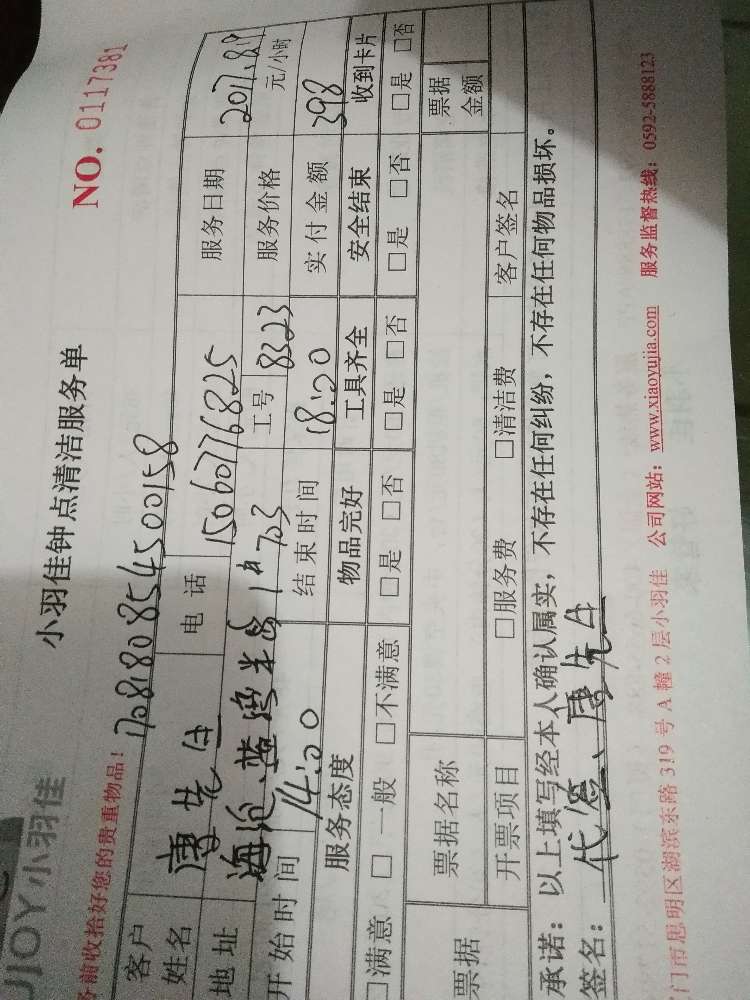 UJOY小羽佳
小羽佳钟点清洁服务单
NO. 0117381
务前收拾好您的贵重物品!
1708180854500158
客户姓名 唐先生 电话 15060776825 服务日期 2017.8.19
地址 海沧 1# 703 工号 8323 服务价格 元/小时
开始时间 14:00 结束时间 18:00 实付金额 398
服务态度 物品完好 工具齐全 安全结束 收到卡片
□满意 □一般 □不满意 □是 □否 □是 □否 □是 □否 □是 □否
票据 票据名称 票据金额
开票项目 □服务费 □清洁费 客户签名
承诺:以上填写经本人确认属实,不存在任何纠纷,不存在任何物品损坏。
签名:代签、唐先生
门市思明区湖滨东路 319 号 A 幢 2 层小羽佳 公司网站:www.xiaoyujia.com 服务监督热线:0592-5888123